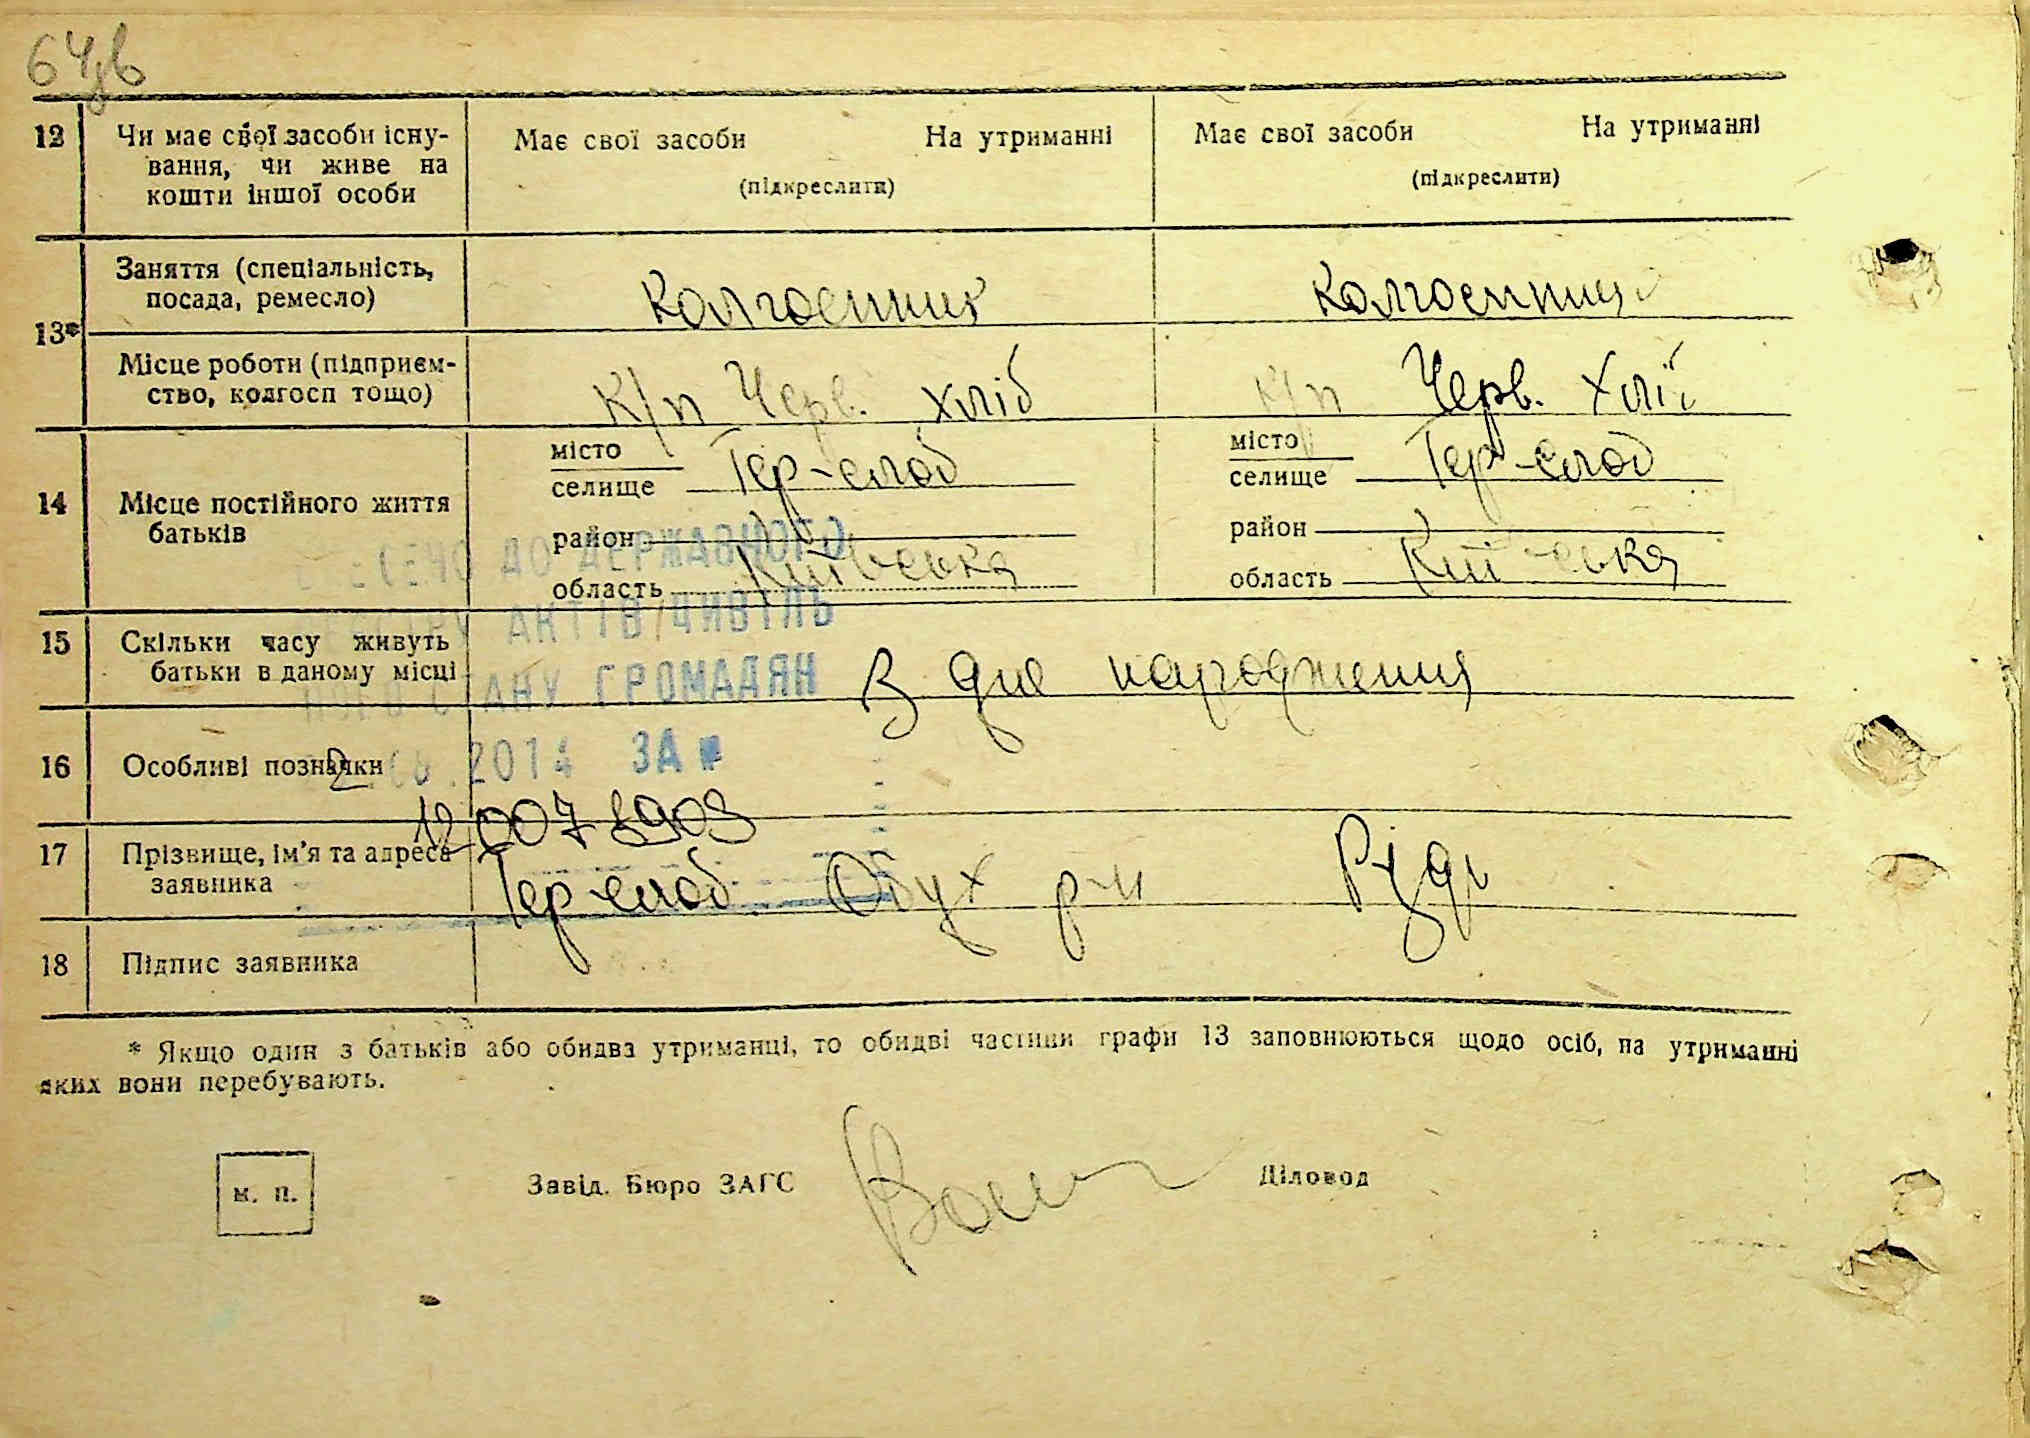 64зв
12 Чи має свої засоби існу- Має свої засоби На утриманні Має свої засоби На утриманні
вання, чи живе на (підкреслити) (підкреслити)
кошти іншої особи
13* Заняття (спеціальність, колгоспник колгоспниця
посада, ремесло)
Місце роботи (підприєм- к/п Черв. хліб к/п Черв. Хліб
ство, колгосп тощо)
14 Місце постійного життя
батьків
місто
селище Гер-слоб
район
область Київська
місто
селище Гер-слоб
район
область Київська
15 Скільки часу живуть
батьки в даному місці З дня народження
16 Особливі позначки
17 Прізвище, ім'я та адреса
заявника Гер-слоб. Обух р-н
18 Підпис заявника
ДО ДЕРЖАВНОГО
АКТІВ ЦИВІЛЬ
СТАНУ ГРОМАДЯН
2014 ЗА №
12 007 8903
* Якщо один з батьків або обидва утриманці, то обидві частини графи 13 заповнюються щодо осіб, на утриманні
яких вони перебувають.
м. п. Завід. Бюро ЗАГС Діловод